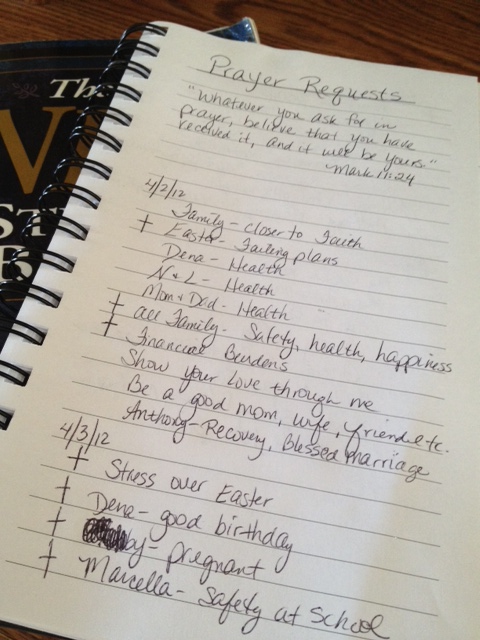 Prayer Requests
"Whatever you ask for in
prayer, believe that you have
received it, and it will be yours."
Mark 11:24
4/2/12
Family - closer to Faith
† Easter - Family plans
Dena - Health
N & L - Health
Mom & Dad - Health
† all Family - Safety, health, happiness
† Financial Burdens
Show your Love through me
Be a good mom, wife, friend etc.
Anthony - Recovery, Blessed Marriage
4/3/12
† Stress over Easter
† Dena - good birthday
† by - pregnant
† Marcella - Safety at School
The
ST
B